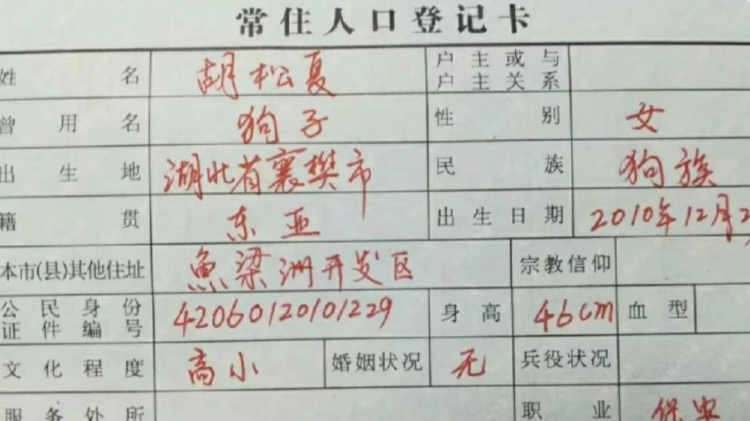 常住人口登记卡
姓名 胡松夏 户主或与户主关系
曾用名 狗子 性别 女
出生地 湖北省襄樊市 民族 狗族
籍贯 东亚 出生日期 2010年12月2
本市(县)其他住址 魚梁洲开发区 宗教信仰
公民身份证件编号 42060120101229 身高 46cm 血型
文化程度 高小 婚姻状况 无 兵役状况
服务处所 职业 保安